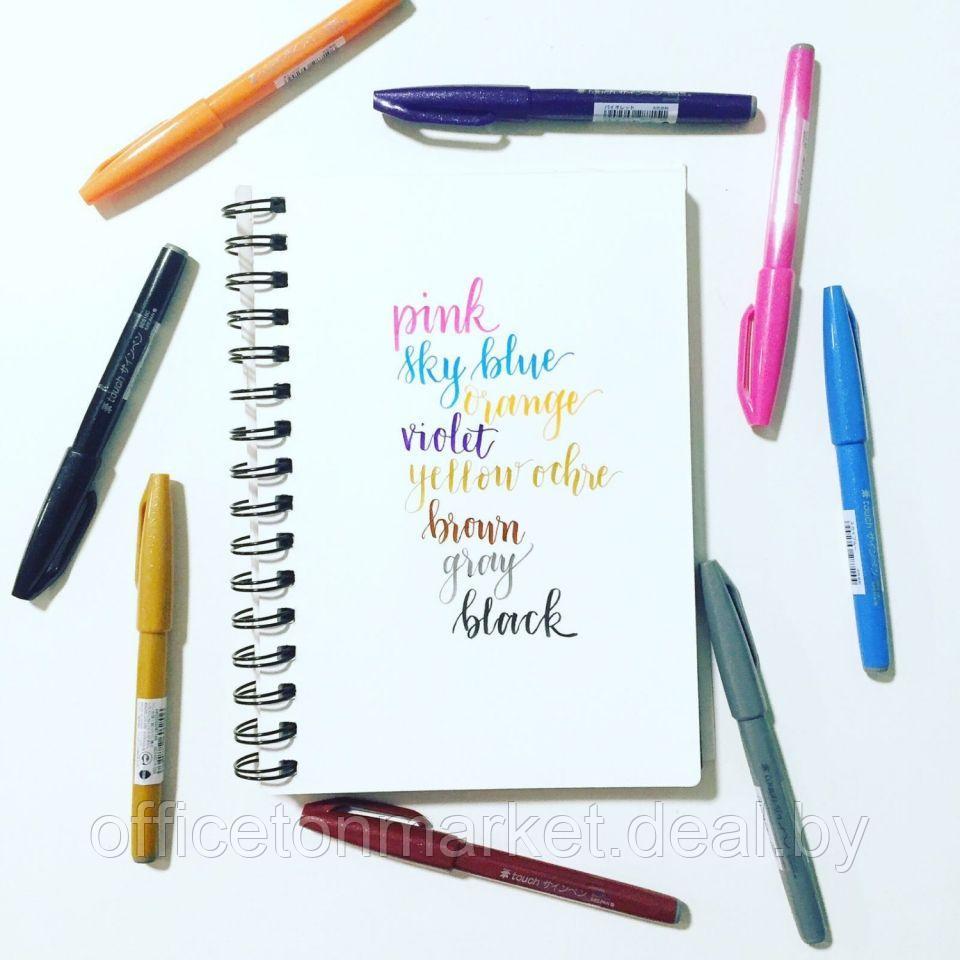 バイオレット
pink
sky blue
orange
violet
yellow ochre
brown
gray
black
touch サインペン
touch サインペン
touch サインペン
touch サインペン
officetonmarket.deal.by